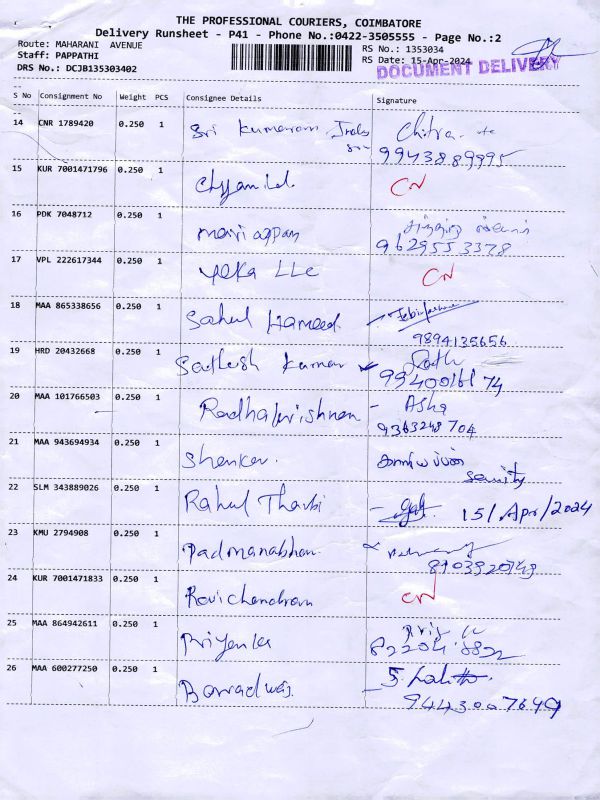 THE PROFESSIONAL COURIERS, COIMBATORE
Delivery Runsheet - P41 - Phone No.:0422-3505555 - Page No.:2
Route: MAHARANI AVENUE
RS No.: 1353034
Staff: PAPPATHI
RS Date: 15-Apr-2024
DRS No.: DCJB135303402
DOCUMENT DELIVERY
S No Consignment No Weight PCS Consignee Details Signature
14 CNR 1789420 0.250 1 Sri Kumaran Chitra
9943889995
15 KUR 7001471796 0.250 1 CN
16 PDK 7048712 0.250 1 mariappan
9629553378
17 VPL 222617344 0.250 1 yeka LLC CN
18 MAA 865338656 0.250 1 Sahul Hameed
9894135656
19 HRD 20432668 0.250 1 Sathesh Kumar
20 MAA 101766503 0.250 1 Radhakrishnan - Asha
9363248704
21 MAA 943694934 0.250 1 Shenkar
22 SLM 343889026 0.250 1 Rahul 15/Apr/2024
23 KMU 2794908 0.250 1 Padmanabhan
24 KUR 7001471833 0.250 1 Ravichandran CN
25 MAA 864942611 0.250 1 Priyenka
26 MAA 600277250 0.250 1
9443007649